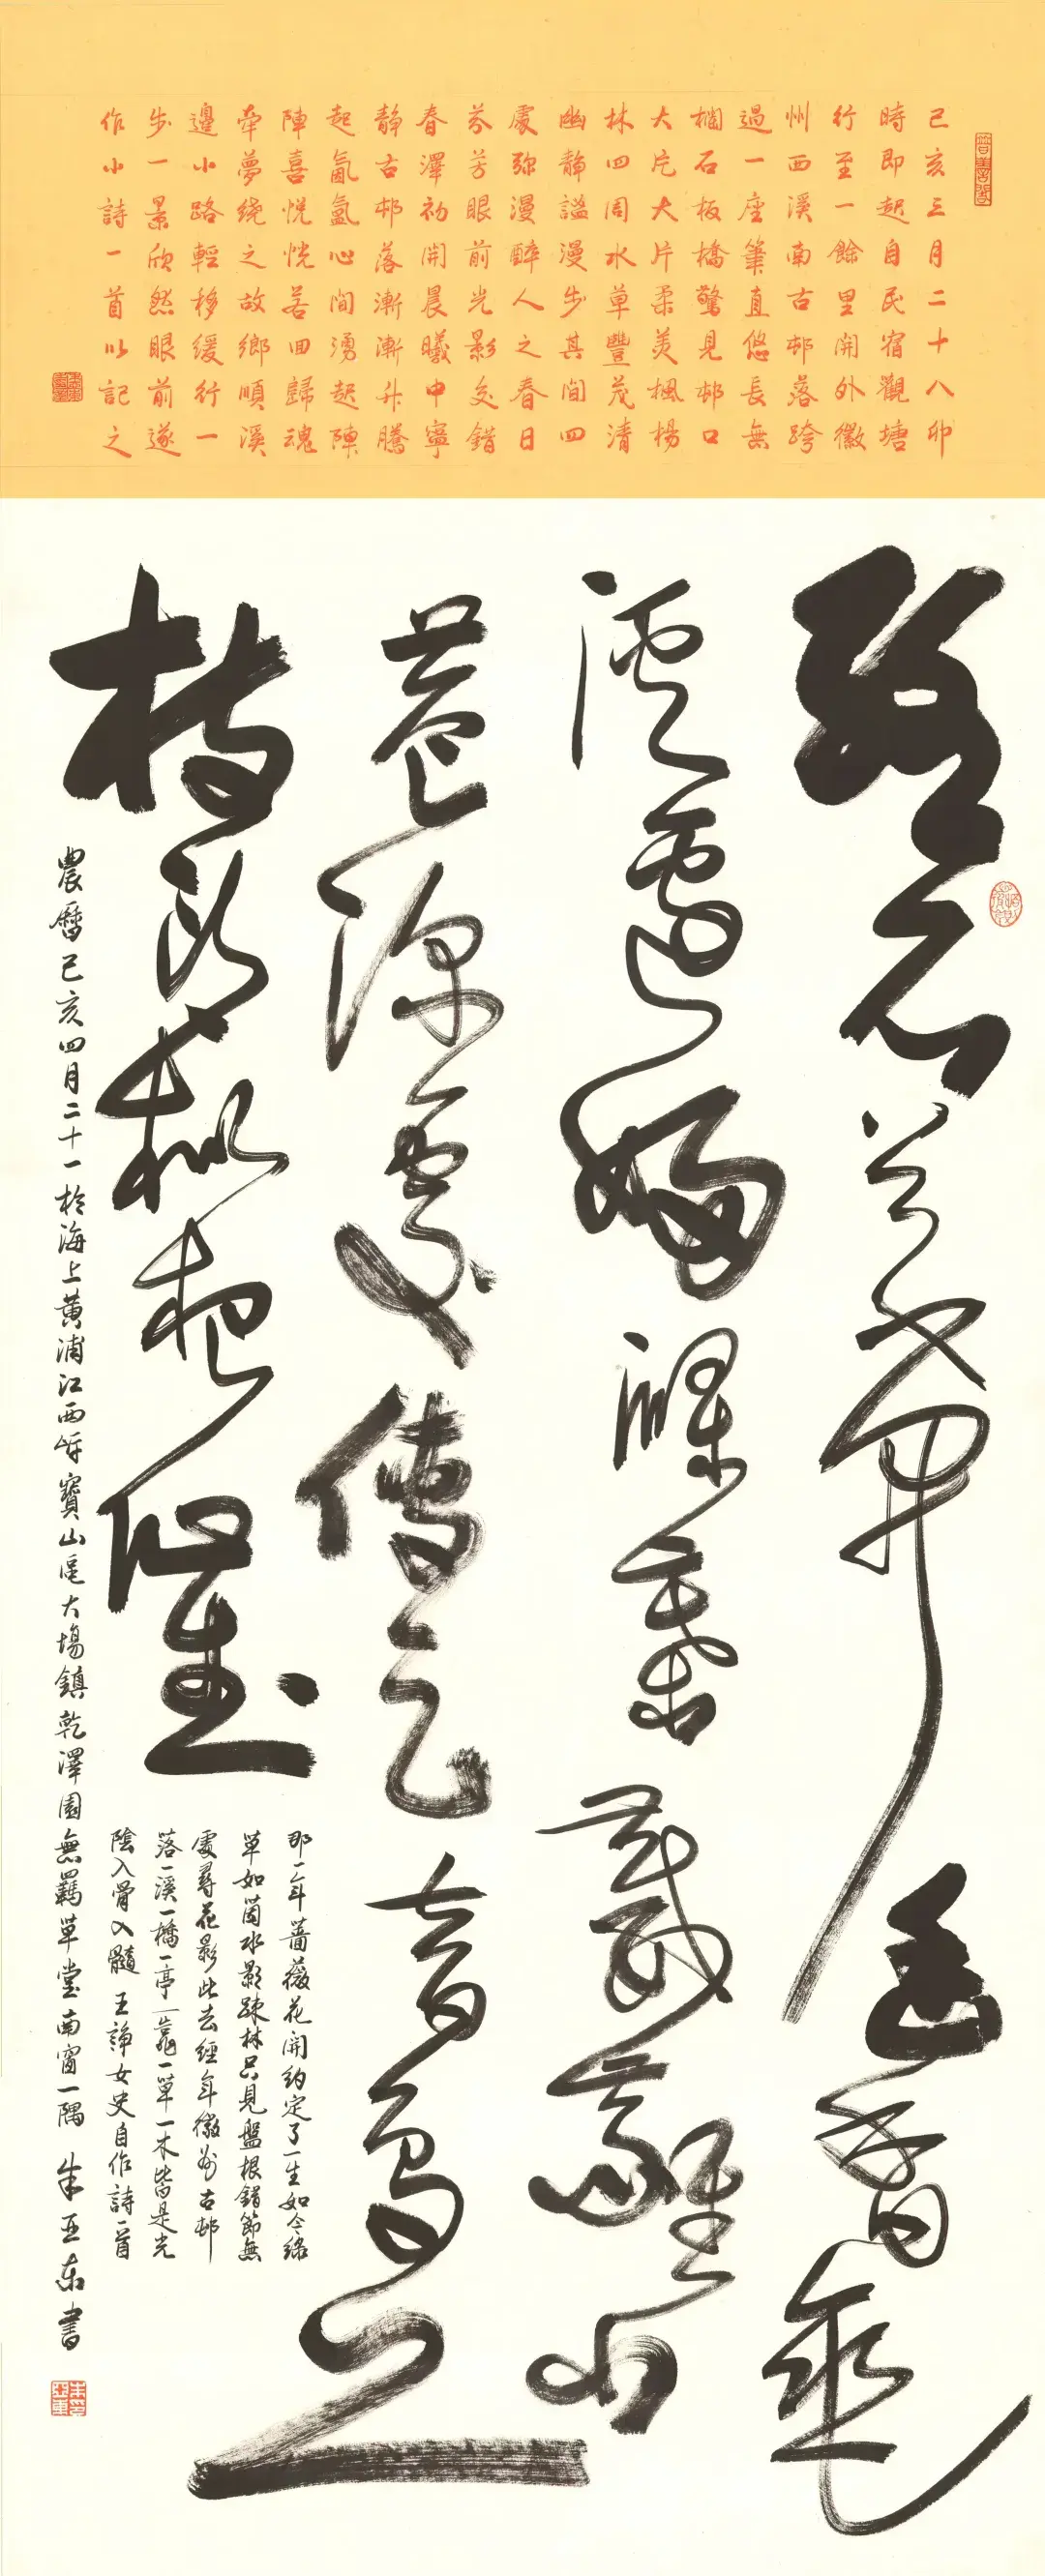 己亥三月二十八卯
時即起自民宿觀塘
行至一餘里開外徽
州西溪南古邨落跨
過一座筆直悠長無
欄石板橋驚見邨口
大片大片柔美楓楊
林四周水草豐茂清
幽静謐漫步其間四
處弥漫醉人之春日
芬芳眼前光影交錯
春澤初開晨曦中寧
静古邨落漸漸升騰
起氤氳心間湧起陣
陣喜悦恍若回歸魂
牽夢繞之故鄉順溪
邊小路輕移緩行一
步一景欣然眼前遂
作小詩一首以記之
石 幽香
溪邊婦
深處傳 音鳥上
枝頭報春催
那一年薔薇花開約定了一生如今緑
草如茵水影疎林只見盤根錯節無
處尋花影此去經年徽州古邨
落一溪一橋一亭一靠一草一木皆是光
陰入骨入髓 王諍女史自作詩一首
農曆己亥四月二十一於海上黄浦江西岸寶山區大場鎮乾澤園無羈草堂南窗一隅 朱亚东書